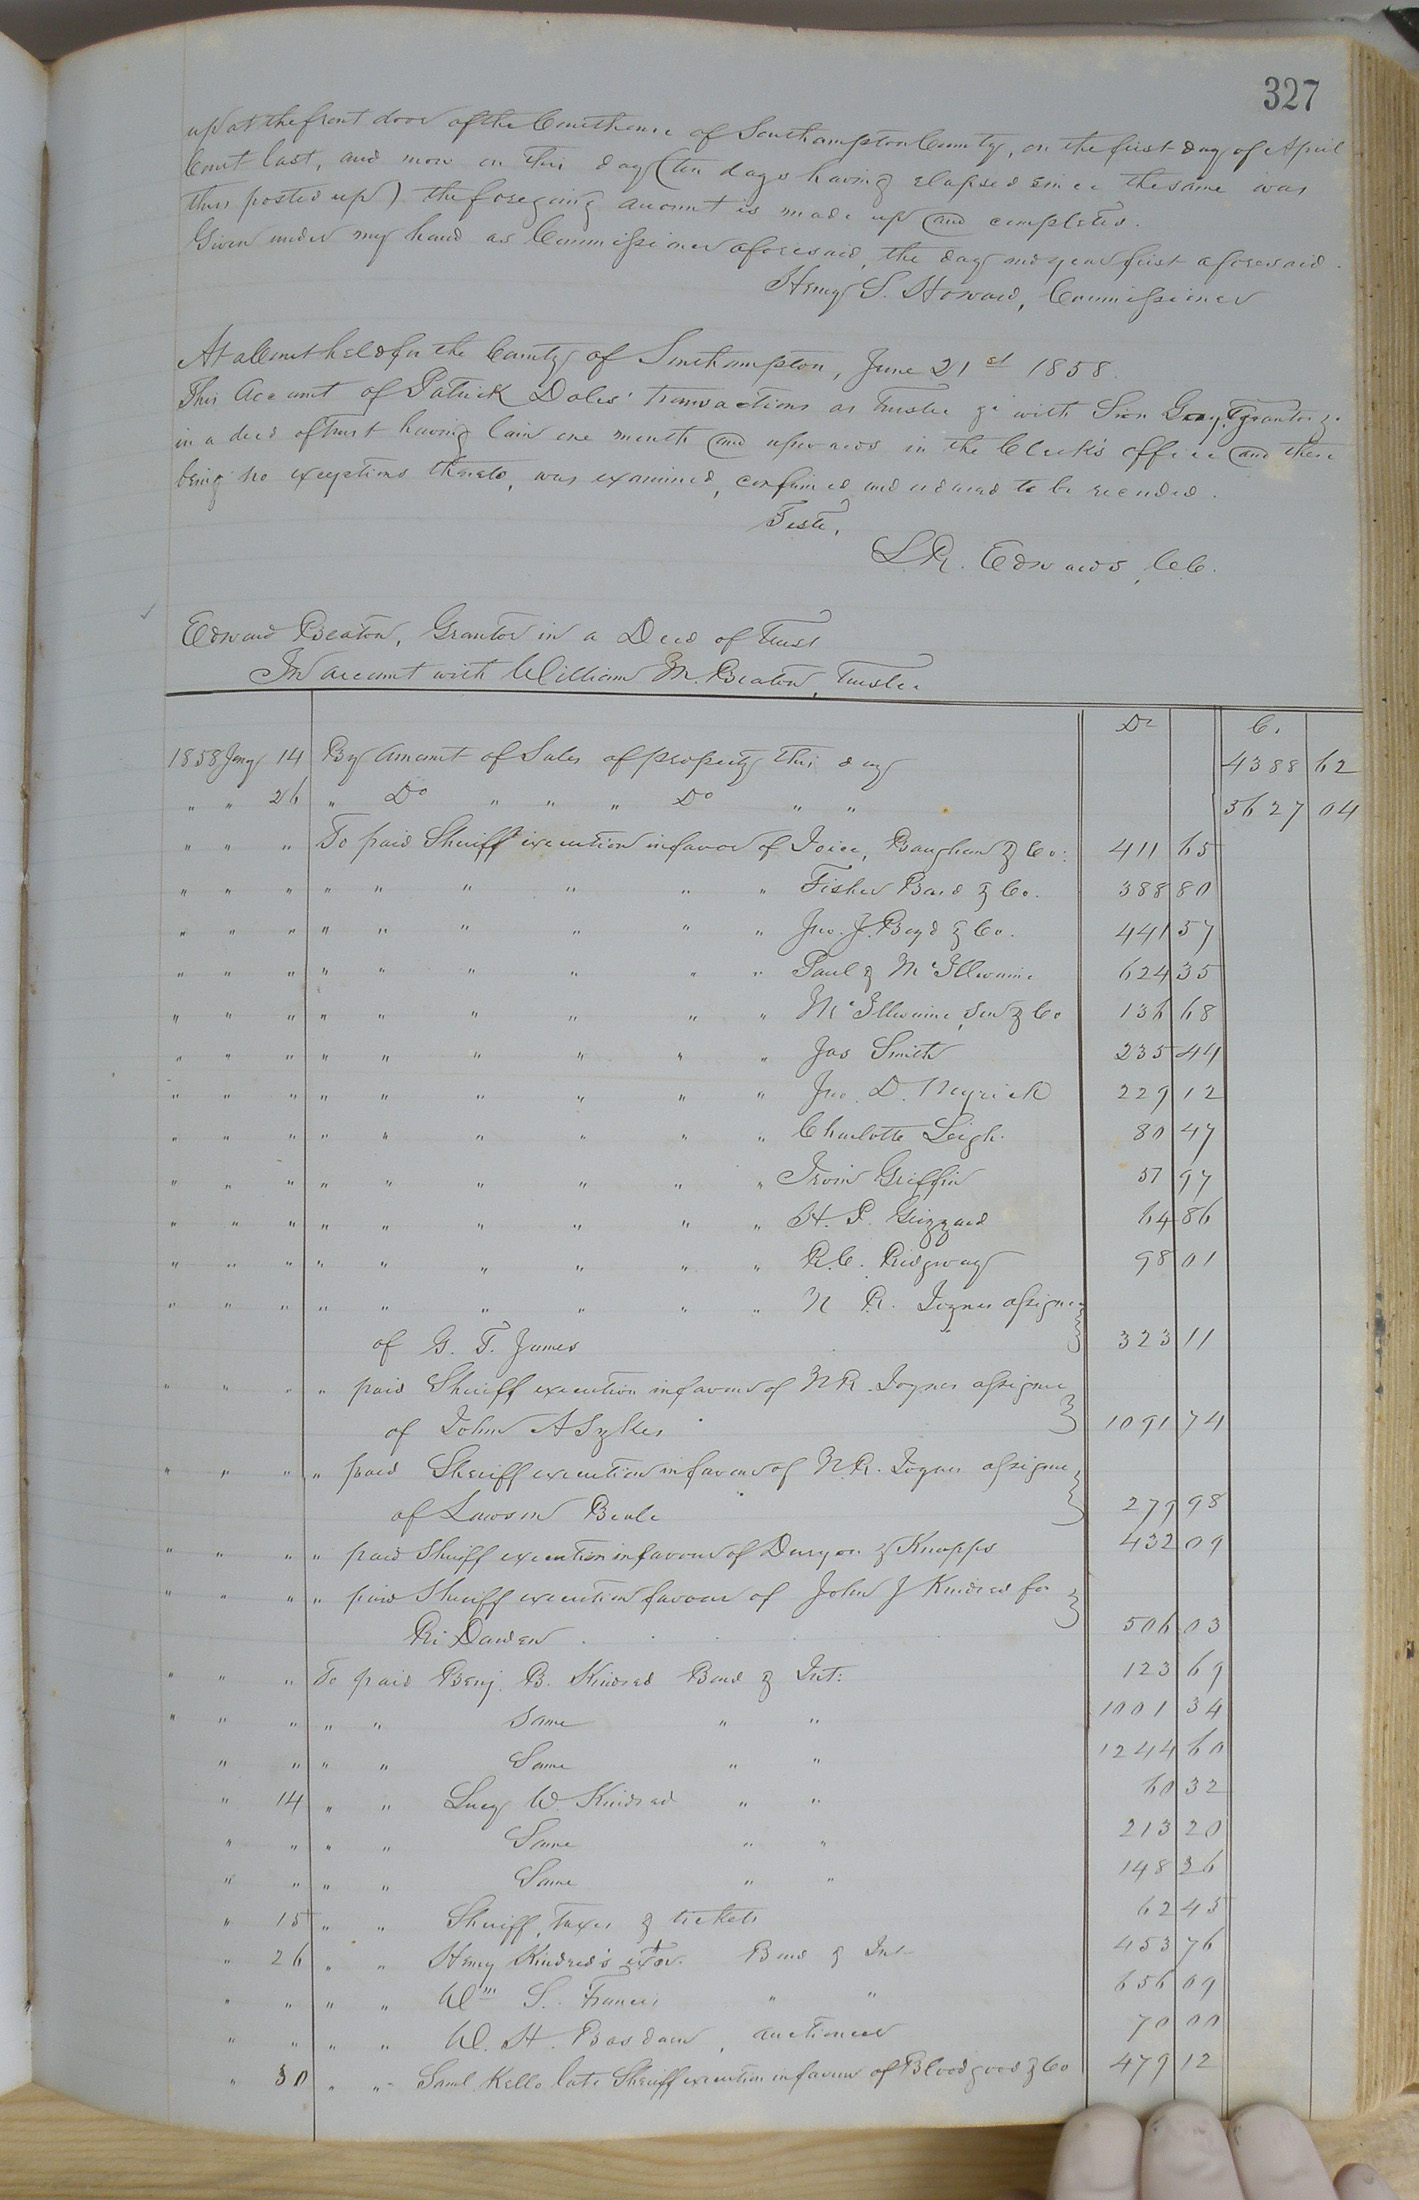 327
up at the front door of the Courthouse of Southampton County, on the first day of April
Court last, and now on this day (ten days having elapsed since the same was
thus posted up) the foregoing account is made up and completed.
Given under my hand as Commissioner aforesaid, the day and year first aforesaid.
Henry S. Howard, Commissioner
At a Court held for the County of Southampton, June 21st 1858.
This Account of Patrick Doles' transactions as Trustee &c with Sion Gray, grantor &c
in a deed of trust having lain one month and upwards in the Clerk's office and there
being no exceptions thereto, was examined, confirmed and ordered to be recorded.
Teste,
L.R. Edwards, C.C.
Edward Beaton, Grantor in a Deed of Trust
In account with William M. Beaton, Trustee
Dr Cr
1858 Jany 14 By amount of Sales of property this day 4388 62
" " 26 " Do " " " Do " " 3627 04
" " " To paid Sheriff execution in favor of Joice, Baugham & Co: 411 65
" " " " " " " " " Fisher Bard & Co. 388 80
" " " " " " " " " Jno. J. Boyd & Co. 441 57
" " " " " " " " " Paul & McIllwaine 624 35
" " " " " " " " " McIllwaine, Son & Co 136 68
" " " " " " " " " Jas Smith 235 44
" " " " " " " " " Jno. D. Myrick 229 12
" " " " " " " " " Charlotte Leigh. 80 47
" " " " " " " " " Irvin Griffin 57 97
" " " " " " " " " H. P. Grizzard 64 86
" " " " " " " " " R.C. Ridgway 98 01
" " " " " " " " " N R. Joyner assignee
of G. T. James 323 11
" " " " paid Sheriff execution in favour of N R. Joyner assignee
of John A Sykes 1091 74
" " " " paid Sheriff execution in favour of N.R. Joyner assignee
of Lawson Beale 279 98
" " " " paid Sheriff execution in favour of Duryee & Knapps 432 09
" " " " paid Sheriff execution favour of John J Kindred for
Ri Darden 506 03
" " " To paid Benj. B. Kindred Bond & Int: 123 69
" " " " " Same " " 1001 34
" " " " Same " " 1244 60
" 14 " " Lucy W. Kindred " " 60 32
" " " " Same " " 213 20
" " " " Same " " 148 36
" 15 " " Sheriff, Taxes & tickets 62 45
" 26 " " Henry Kindred's extor. Bond & Int 453 76
" " " " Wm S. Francis " " 656 09
" " " " W. H. Bosdaw, auctioneer 70 00
" 30 " " Saml. Kello late Sheriff execution in favour of Bloodgood & Co 479 12